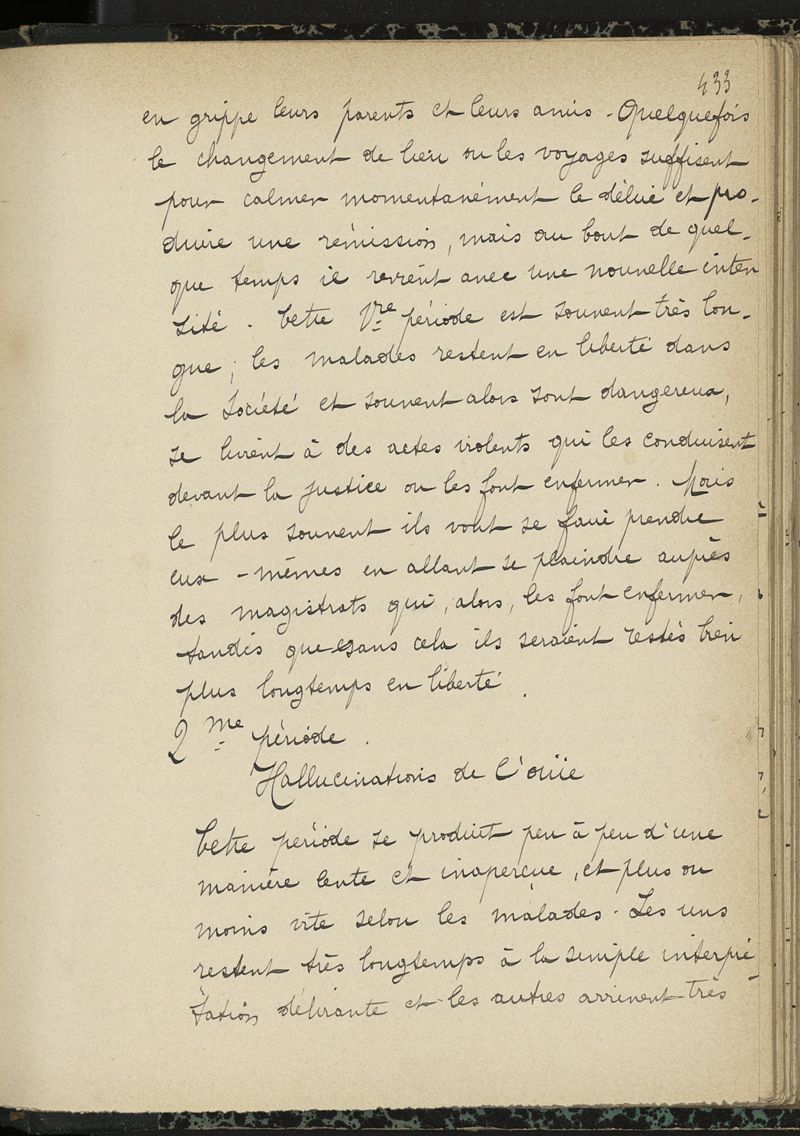 433
en grippe leurs parents et leurs amis. Quelquefois
le changement de lieu ou les voyages suffisent
pour calmer momentanément le délire et pro-
duire une rémission, mais au bout de quel-
que temps il revient avec une nouvelle inten
sité. Cette 1re période est souvent très lon-
gue, les malades restent en liberté dans
la société et souvent alors sont dangereux,
se livrent à des actes violents qui les conduisent
devant la justice ou les font enfermer. Mais
le plus souvent ils vont se faire prendre
eux-mêmes en allant se plaindre auprès
des magistrats qui, alors, les font enfermer,
tandis que sans cela ils seraient restés bien
plus longtemps en liberté.
2me période.
Hallucinations de l'ouïe
Cette période se produit peu à peu d'une
manière lente et inaperçue, et plus ou
moins vite selon les malades. Les uns
restent très longtemps à la simple interpré-
tation délirante et les autres arrivent très